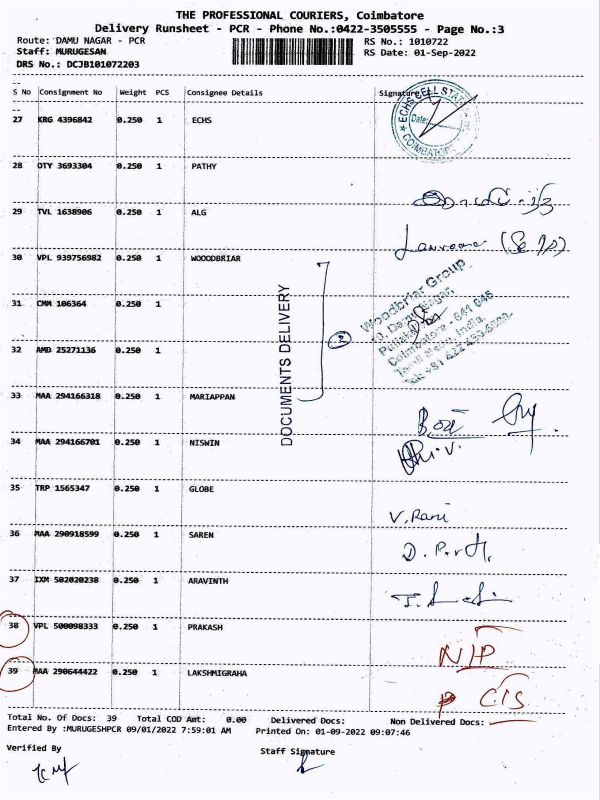 THE PROFESSIONAL COURIERS, Coimbatore
Delivery Runsheet - PCR - Phone No.:0422-3505555 - Page No.:3
Route: DAMU NAGAR - PCR RS No.: 1010722
Staff: MURUGESAN RS Date: 01-Sep-2022
DRS No.: DCJB101072203
S No Consignment No Weight PCS Consignee Details Signature
27 KRG 4396842 0.250 1 ECHS
ECHS CELL STAT
Date:
COIMBATORE
28 OTY 3693304 0.250 1 PATHY
29 TVL 1638906 0.250 1 ALG
30 VPL 939756982 0.250 1 WOOODBRIAR
31 CMM 106364 0.250 1
32 AMD 25271136 0.250 1
DOCUMENTS DELIVERY
2
Woodbriar Group
Coimbatore - 641 045
Tamil Nadu, India.
33 MAA 294166318 0.250 1 MARIAPPAN
34 MAA 294166701 0.250 1 NISWIN
35 TRP 1565347 0.250 1 GLOBE
V. Rani
36 MAA 290918599 0.250 1 SAREN
37 IXM 502020238 0.250 1 ARAVINTH
38 VPL 500098333 0.250 1 PRAKASH
39 MAA 290644422 0.250 1 LAKSHMIGRAHA
Total No. Of Docs: 39 Total COD Amt: 0.00 Delivered Docs: Non Delivered Docs:
Entered By :MURUGESHPCR 09/01/2022 7:59:01 AM Printed On: 01-09-2022 09:07:46
Verified By Staff Signature